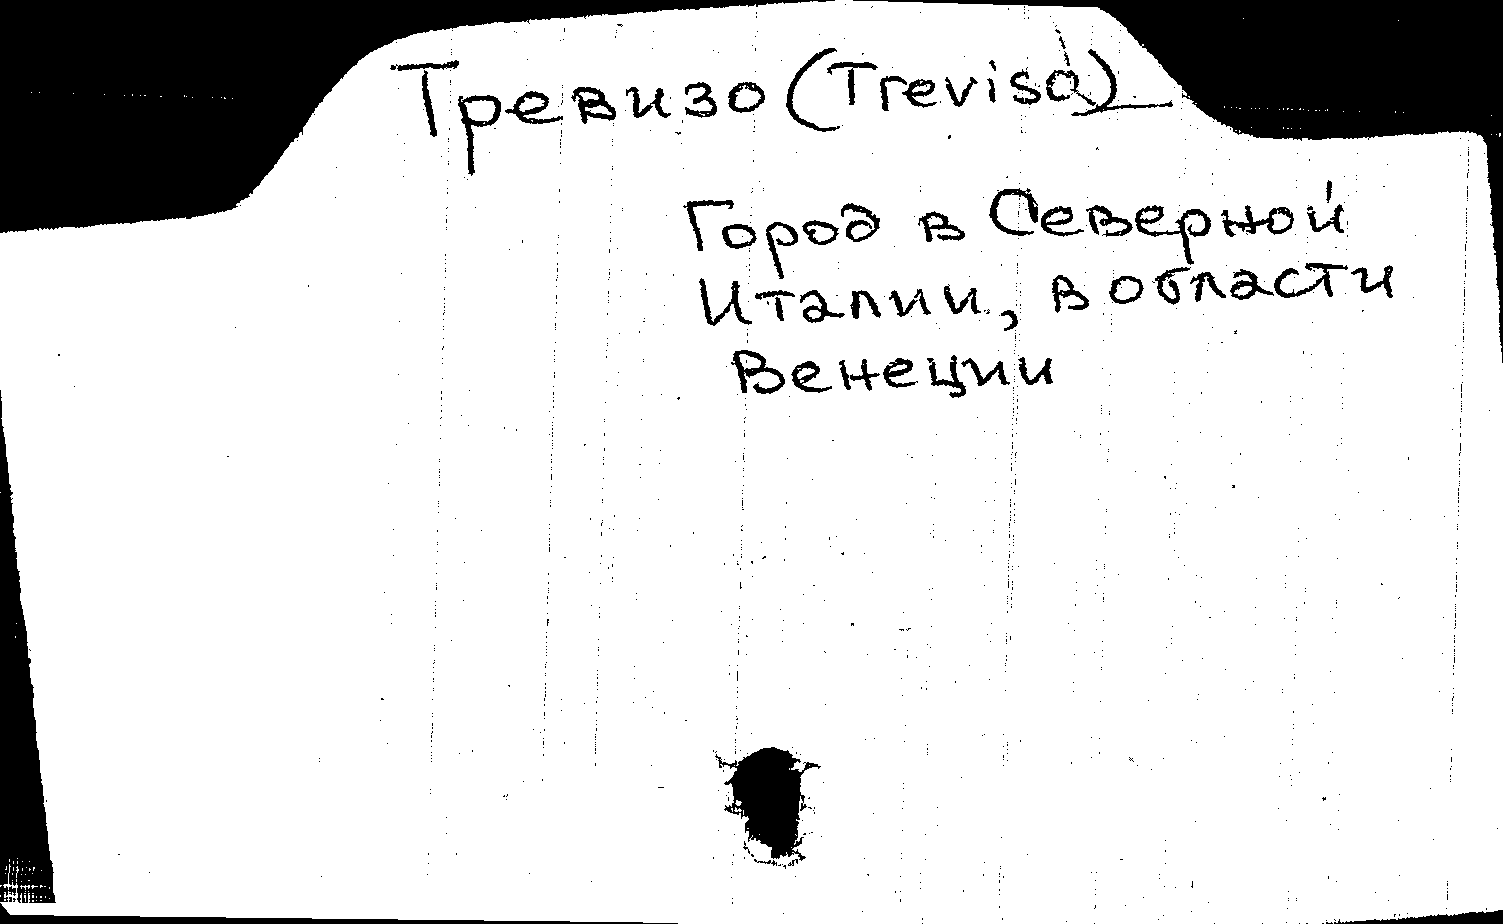 Тревизо (Treviso)
Город в Северной
Италии, в области
Венеции